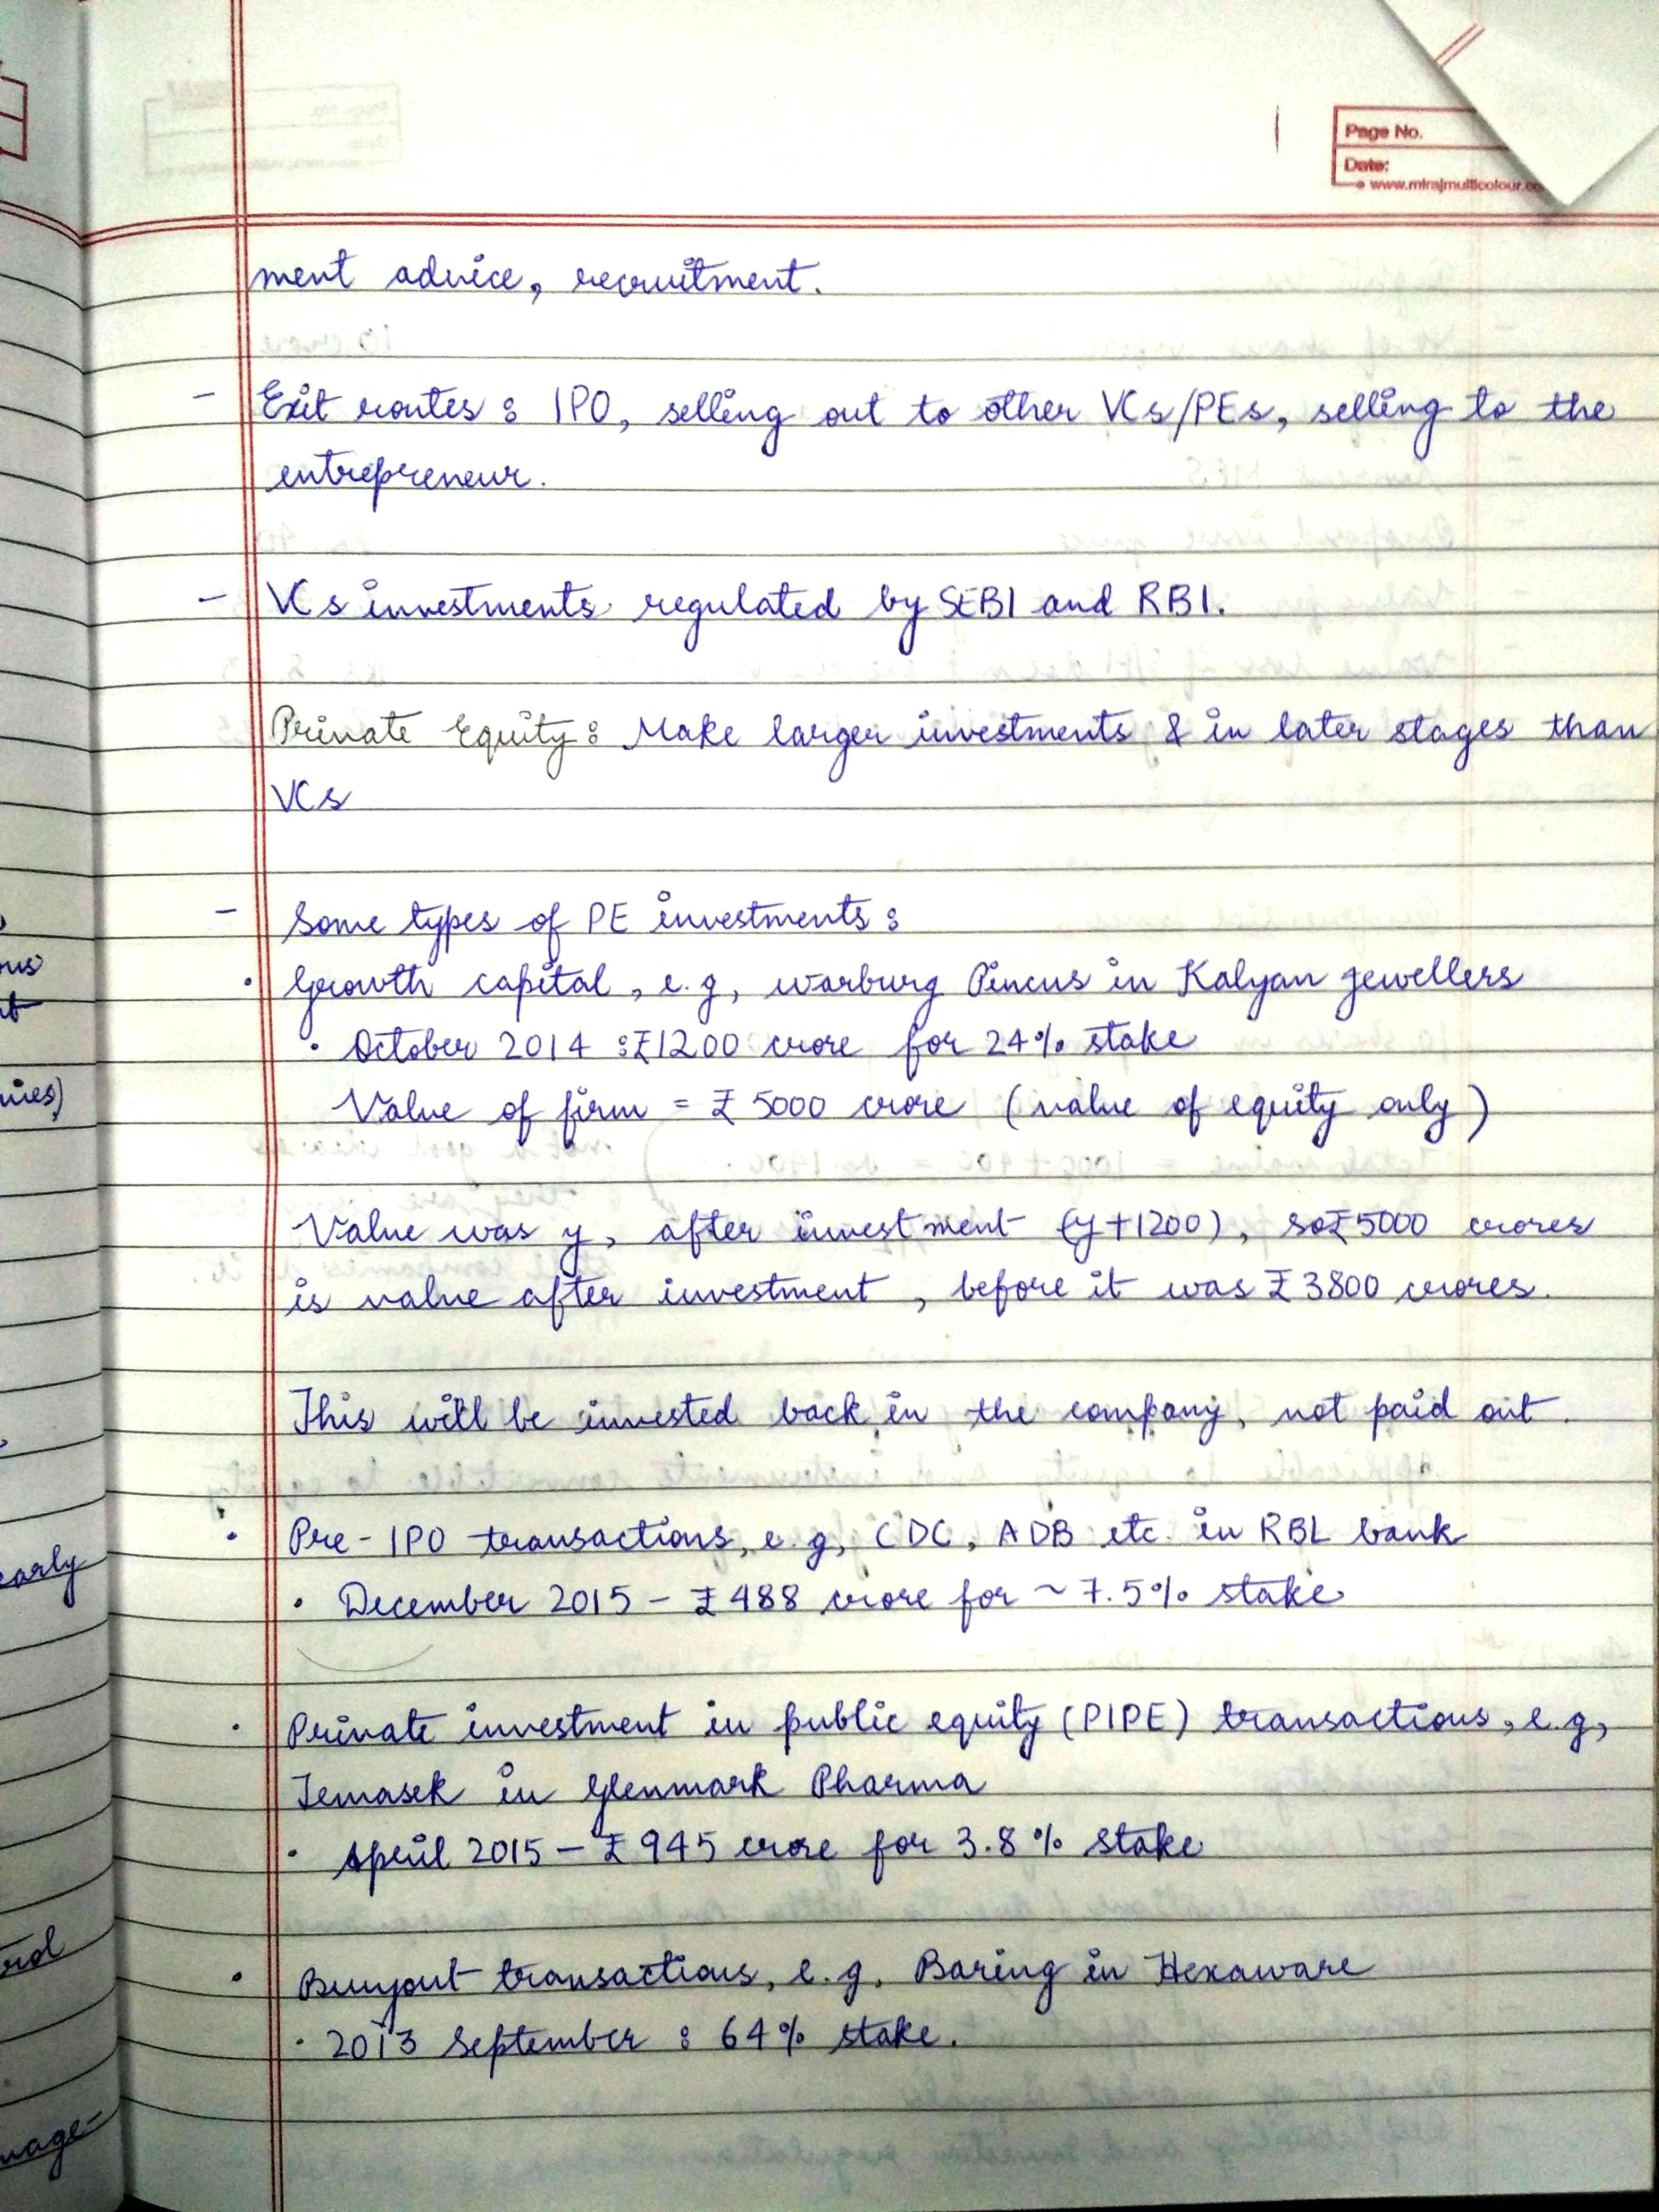 Page No.
Date:
www.mirajmulticolour.co
ment advice, recruitment.
- Exit routes : IPO, selling out to other VCs/PEs, selling to the
entrepreneur.
- VCs investments regulated by SEBI and RBI.
Private Equity : Make larger investments & in later stages than
VCs
- Some types of PE investments :
· Growth capital, e.g, warburg Pincus in Kalyan Jewellers
· October 2014 : ₹1200 crore for 24% stake
Value of firm = ₹ 5000 crore (value of equity only)
Value was y, after investment (y+1200), so ₹5000 crores
is value after investment, before it was ₹ 3800 crores.
This will be invested back in the company, not paid out.
· Pre-IPO transactions, e.g, CDC, ADB etc. in RBL bank
· December 2015 - ₹ 488 crore for ~ 7.5% stake
· Private investment in public equity (PIPE) transactions, e.g,
Temasek in Glenmark Pharma
· April 2015 - ₹ 945 crore for 3.8% stake
· Buyout transactions, e.g. Baring in Hexaware
· 2013 September : 64% stake.
ous
nies)
early
nage-